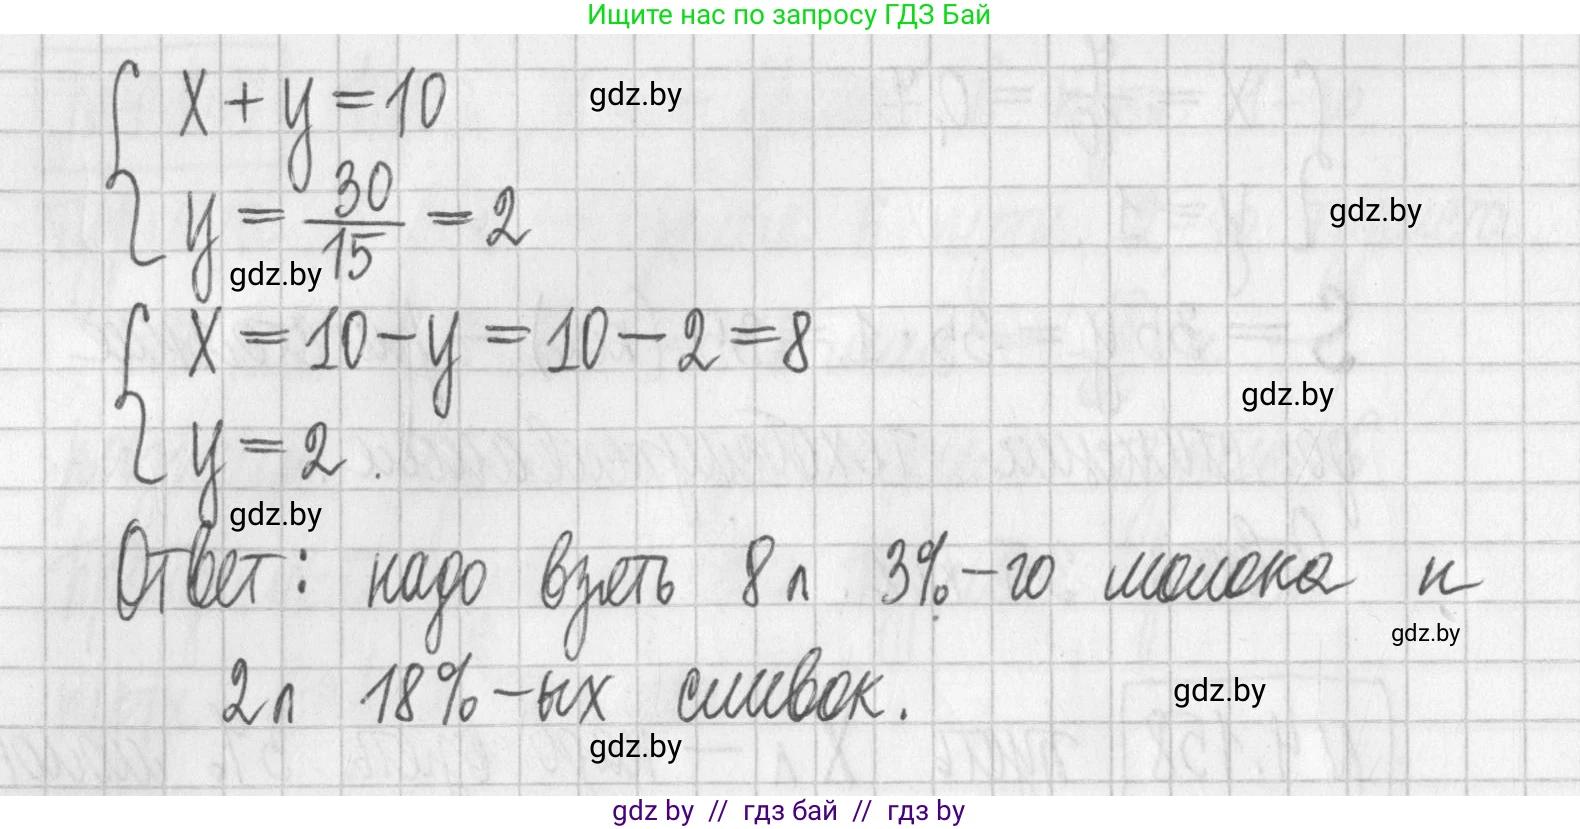 Ищите нас по запросу ГДЗ Бай
x + y = 10
gdz.by
y = 30/15 = 2
gdz.by
gdz.by
x = 10 - y = 10 - 2 = 8
gdz.by
y = 2.
gdz.by
Ответ: надо взять 8 л 3%-го молока и
gdz.by
2 л 18%-ых сливок.
gdz.by
gdz.by
gdz by // гдз бай // гдз by